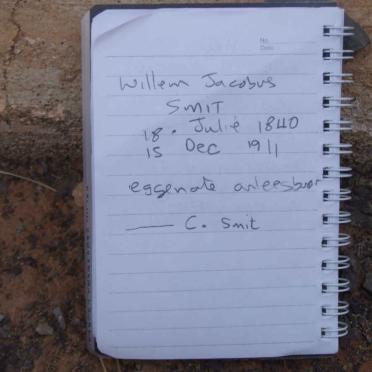 No.
Date
Willem Jacobus
SMIT
18. Julie 1840
15 Dec 1911
eggenote
C. Smit